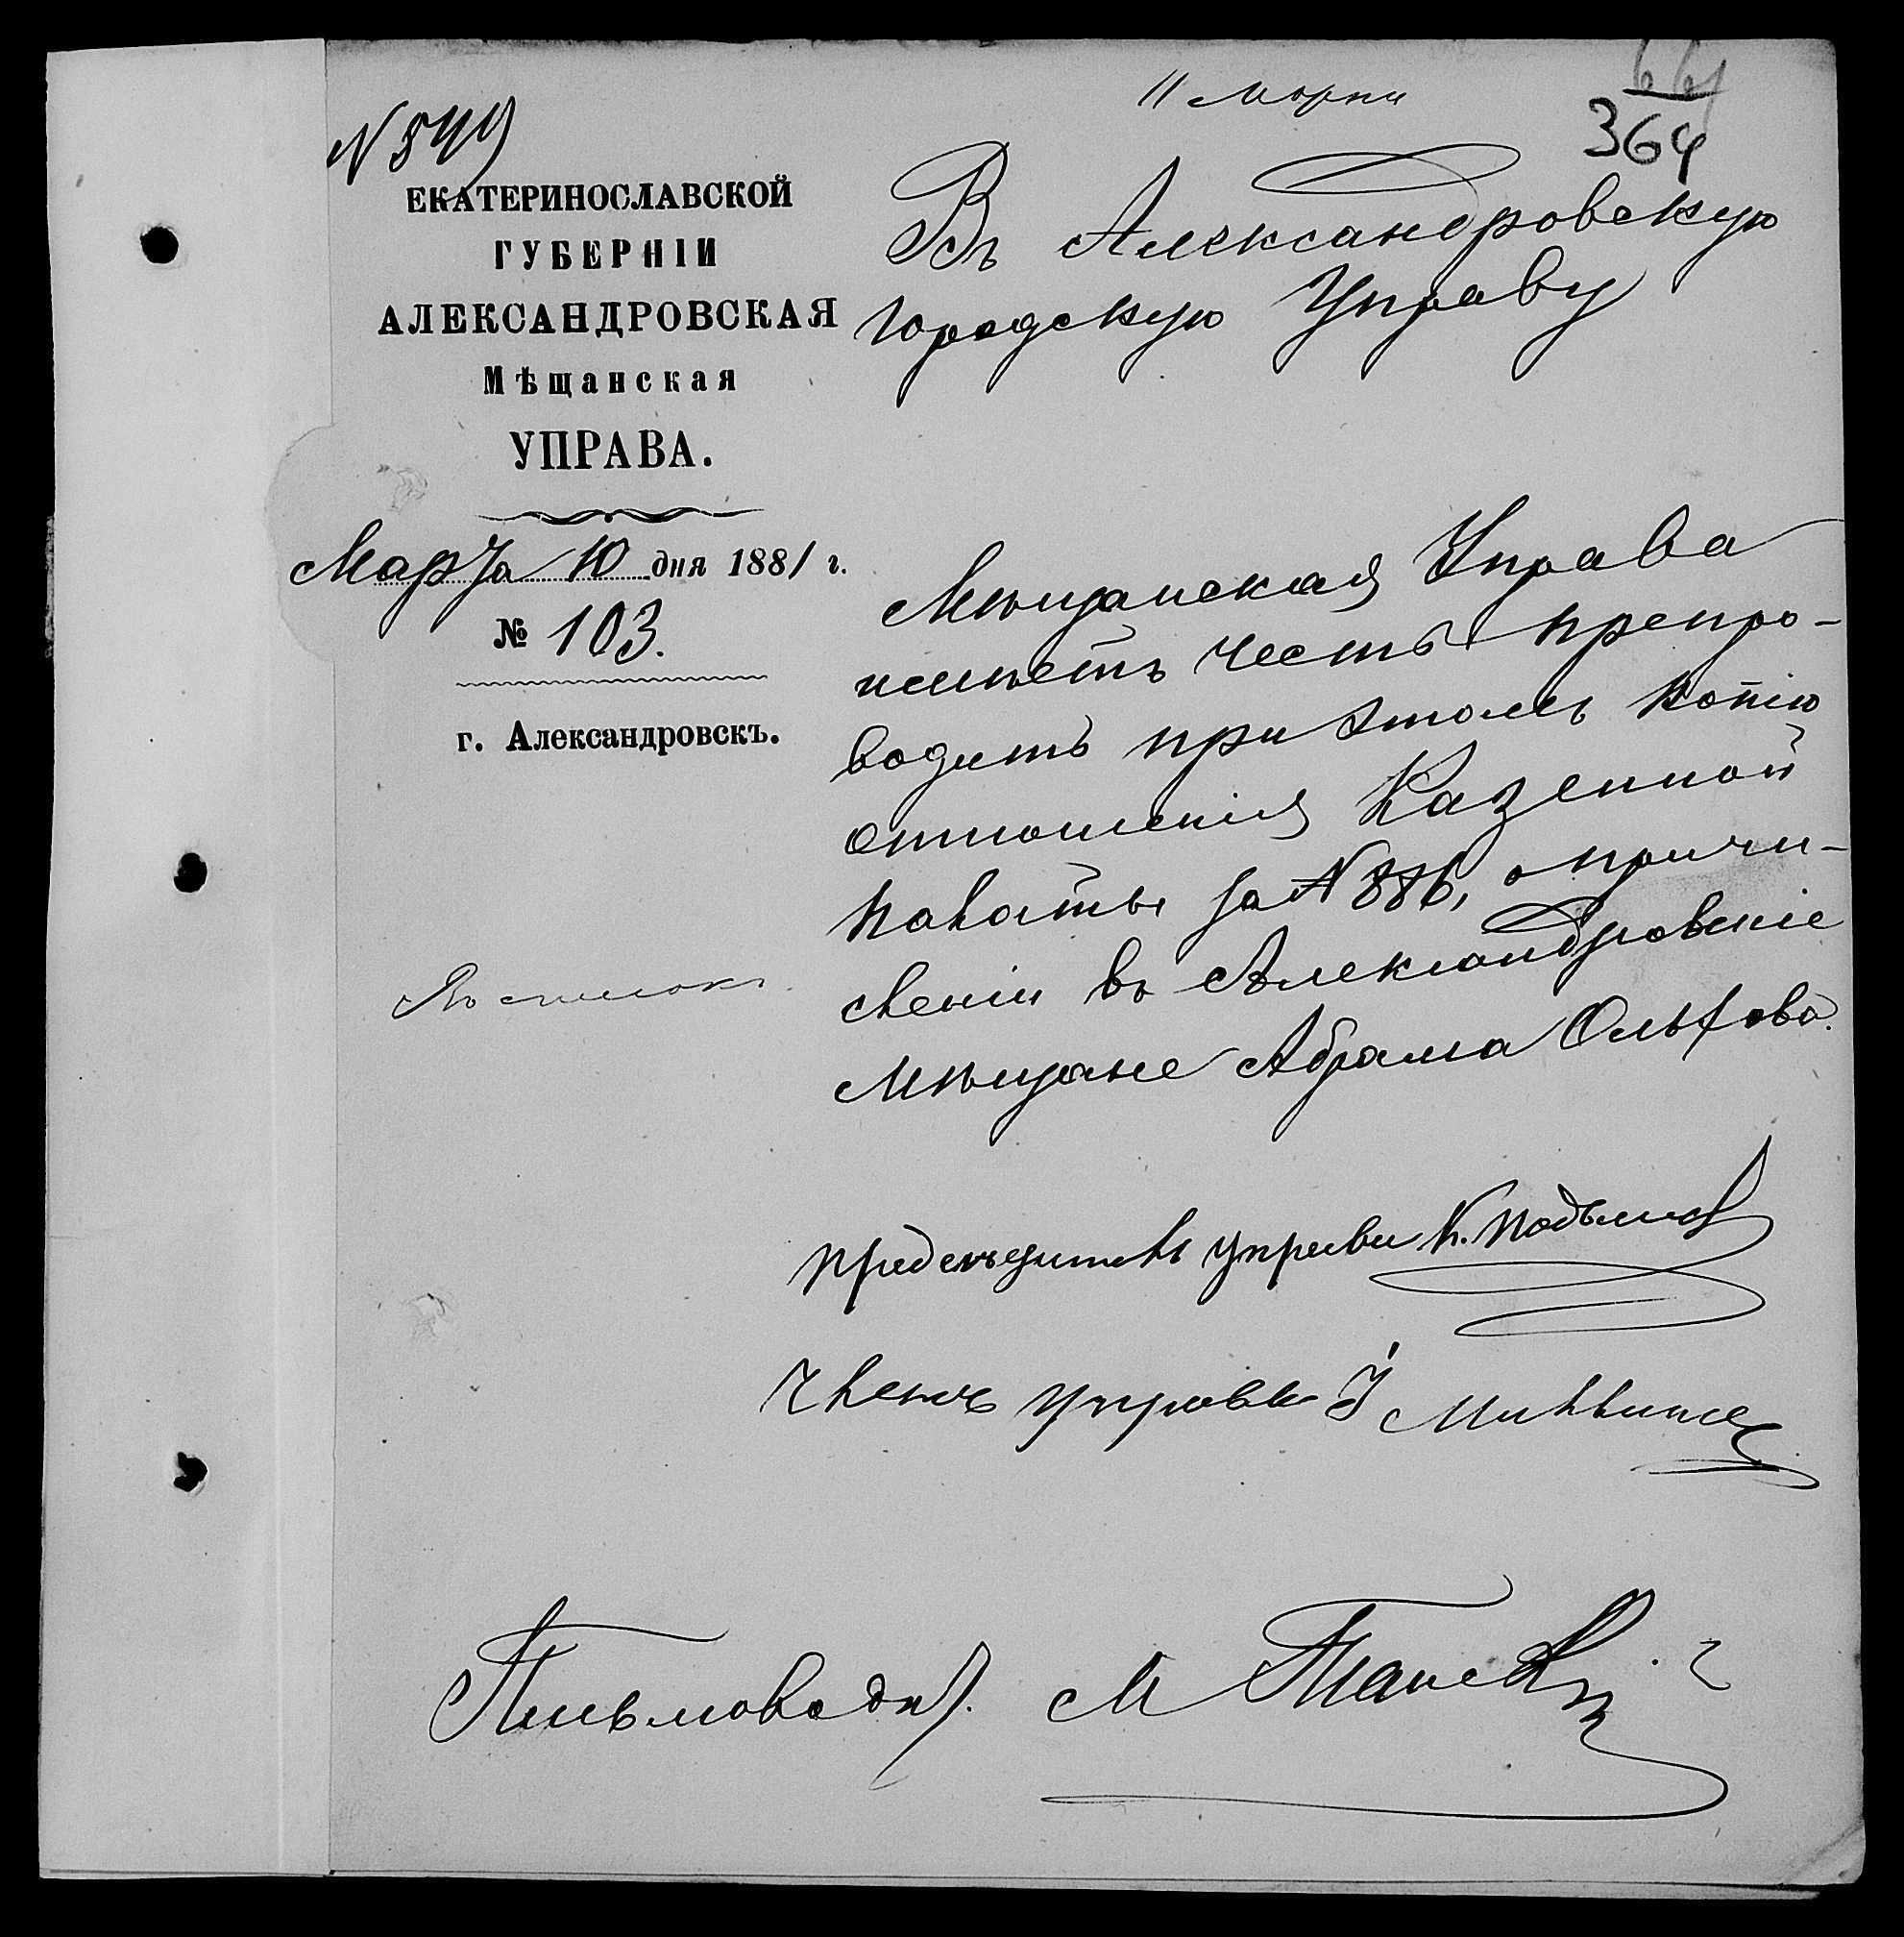 11 Марта
364
N 549
ЕКАТЕРИНОСЛАВСКОЙ
ГУБЕРНІИ
АЛЕКСАНДРОВСКАЯ
Мѣщанская
УПРАВА.
Марта 10 дня 1881 г.
№ 103.
г. Александровскъ.
Въ Александровскую
Городскую Управу
Мѣщанская Управа
имѣетъ честь препро-
водить при этомъ копію
отношенія Казенной
Палаты за N 886, о причи-
сленіи въ Александровскіе
мѣщане Абрама Ольхова.
Къ спискамъ
Предсѣдатель управы К.
Членъ управы І
Письмоводи. М